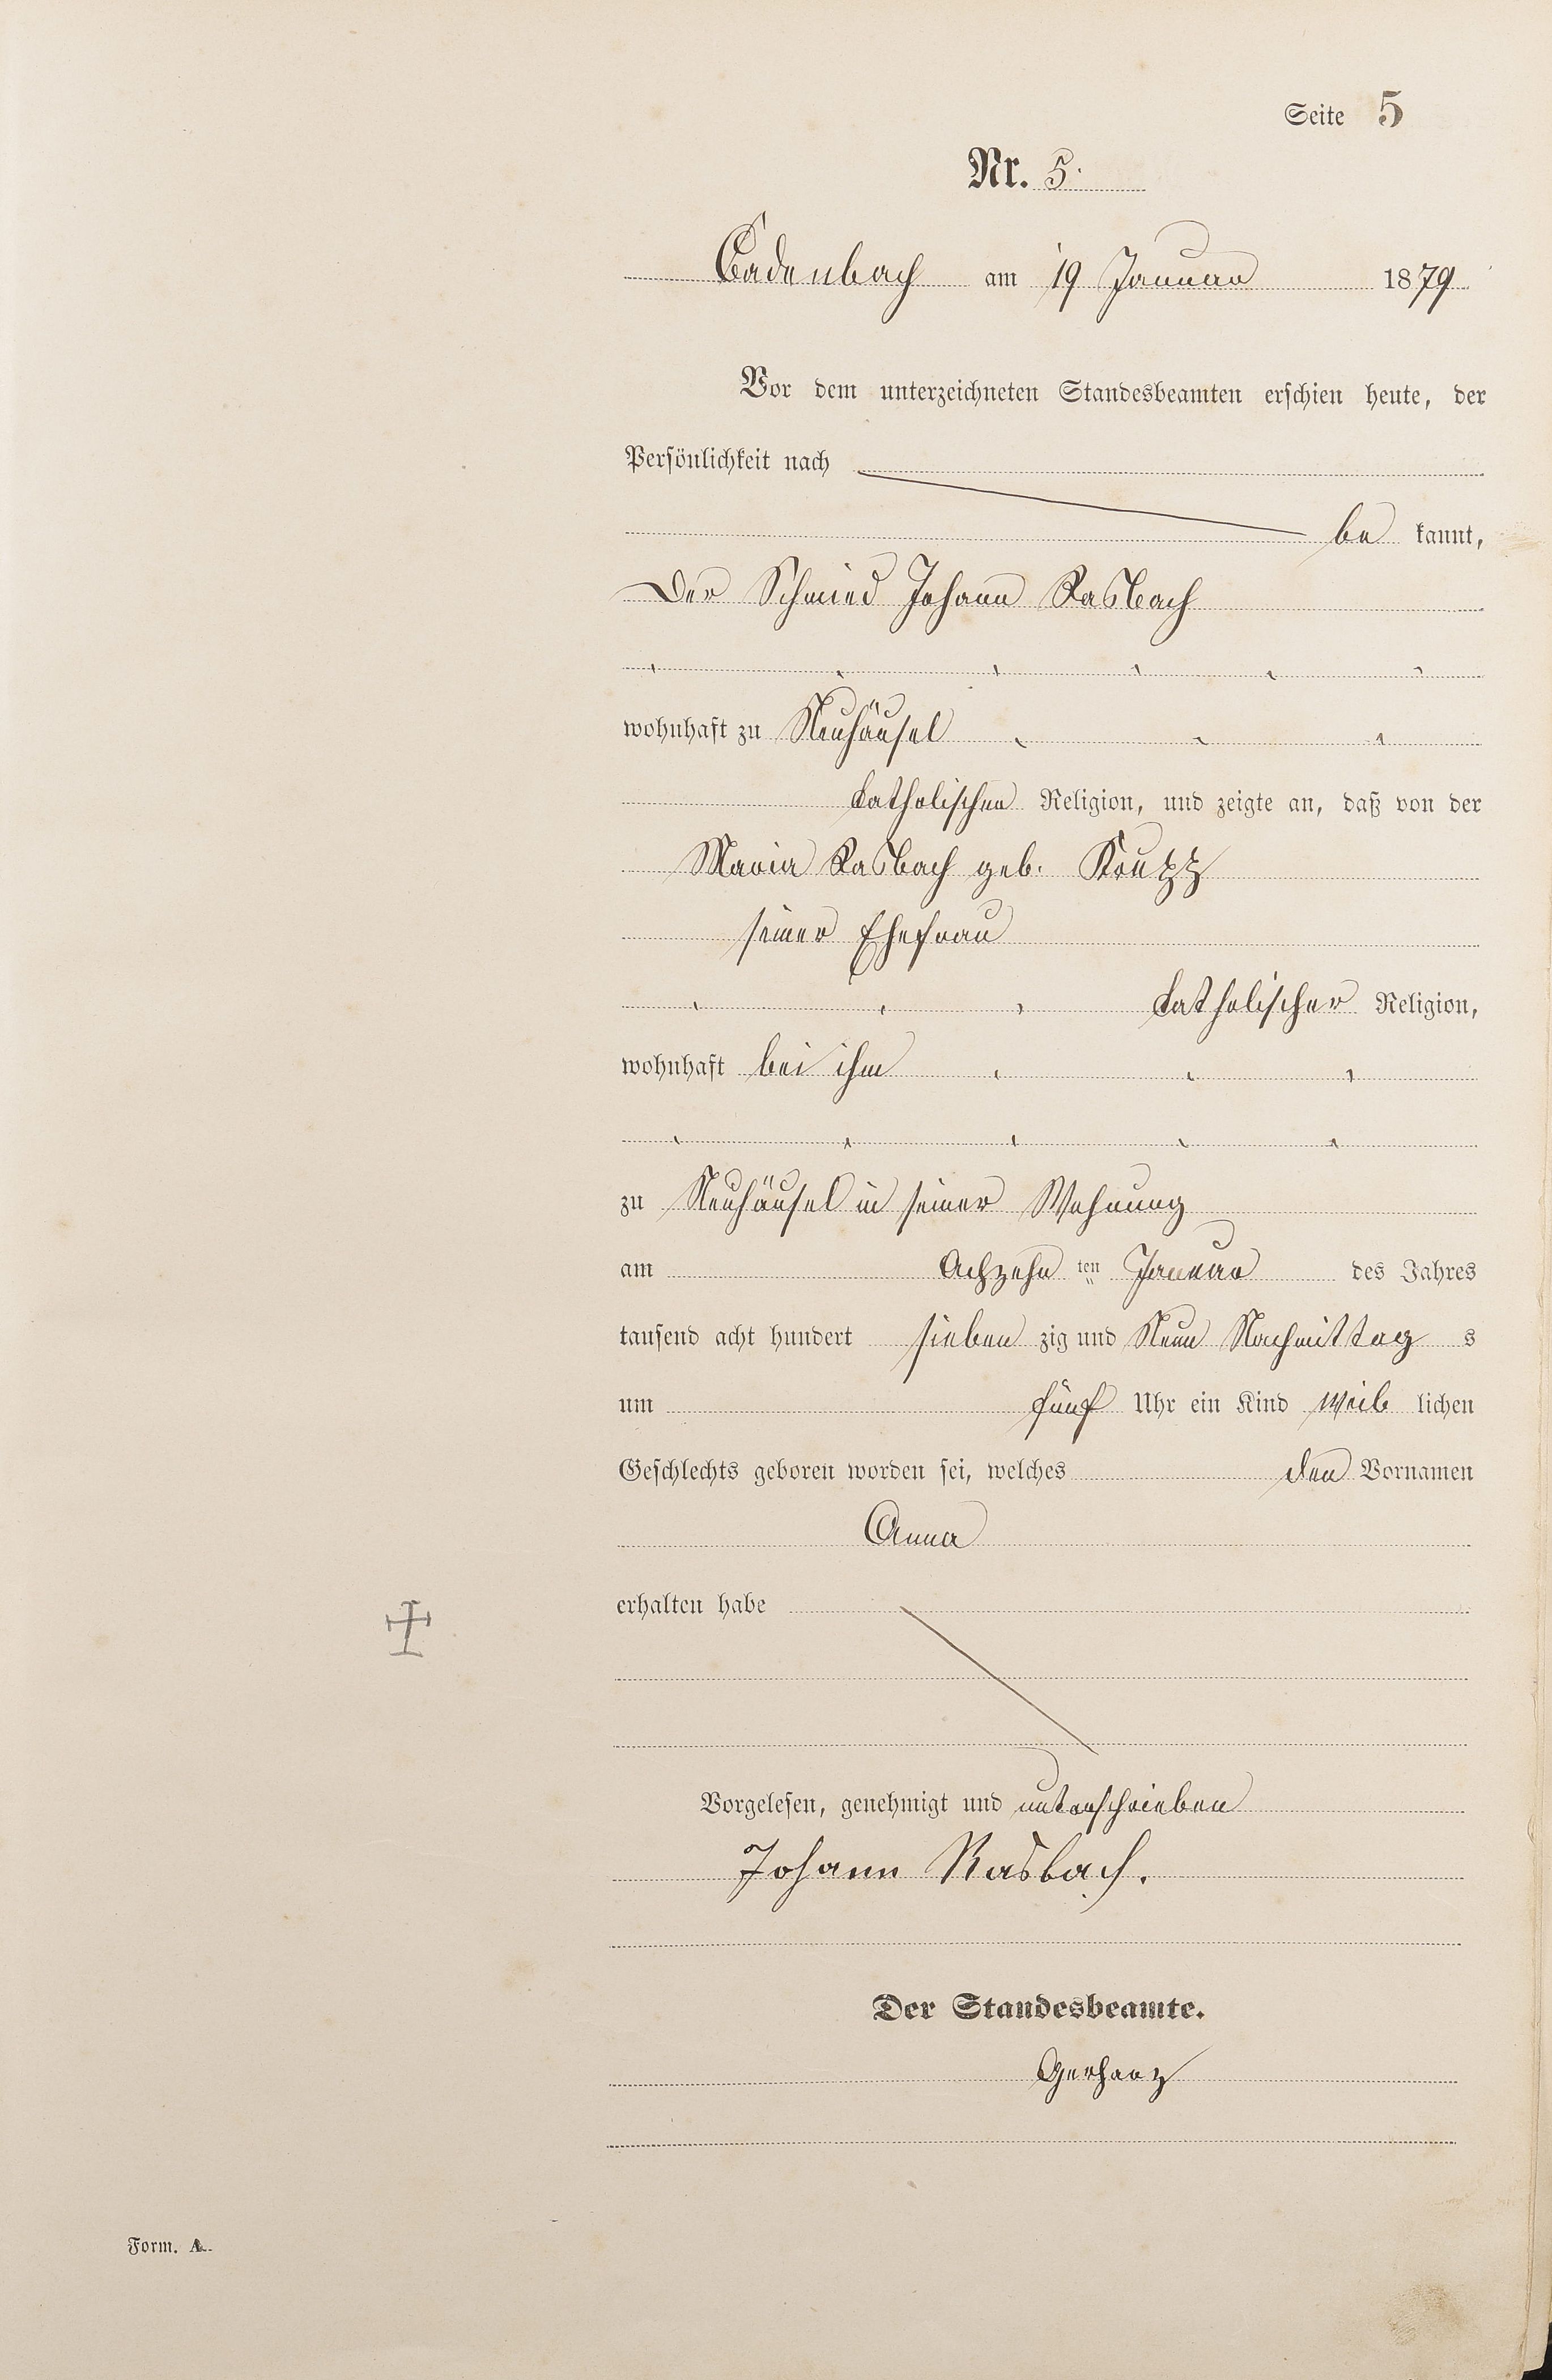 Seite 5
Nr. 5.
Cadenbach am 19 Januar 1879
Vor dem unterzeichneten Standesbeamten erschien heute, der
Persönlichkeit nach
be kannt,
Der Schmied Johann Rasbach
wohnhaft zu Neuhäusel
katholischer Religion, und zeigte an, daß von der
Maria Rasbach geb.
seiner Ehefrau
katholischer Religion,
wohnhaft bei ihm
zu Neuhäusel in seiner Wohnung
am Achzehn ten Januar des Jahres
tausend acht hundert sieben zig und Neun Nachmittag s
um fünf Uhr ein Kind weib lichen
Geschlechts geboren worden sei, welches den Vornamen
Anna
erhalten habe
Vorgelesen, genehmigt und unterschrieben
Johann Rasbach.
Der Standesbeamte.
Gerharz
Form. A.